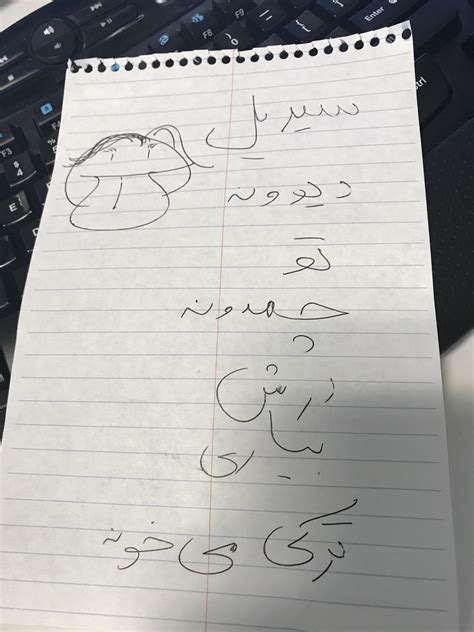 سیبیل
دیوونه
تو
چمدونه
درش
بیاری
ترکی می خونه
Enter
Ctrl
F3
F4
$
4